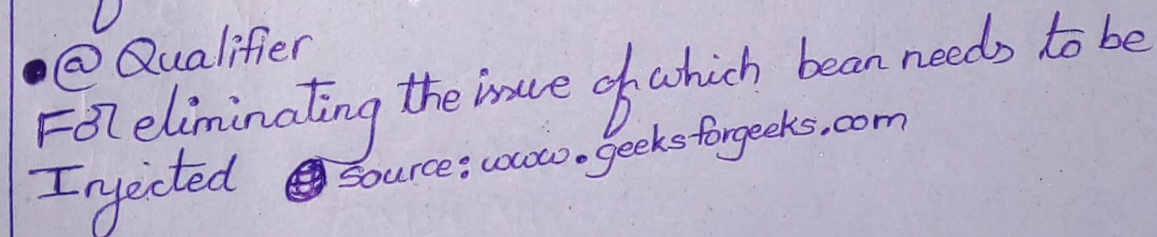 • @ Qualifier
For eliminating the issue of which bean needs to be
Injected source: www.geeksforgeeks.com